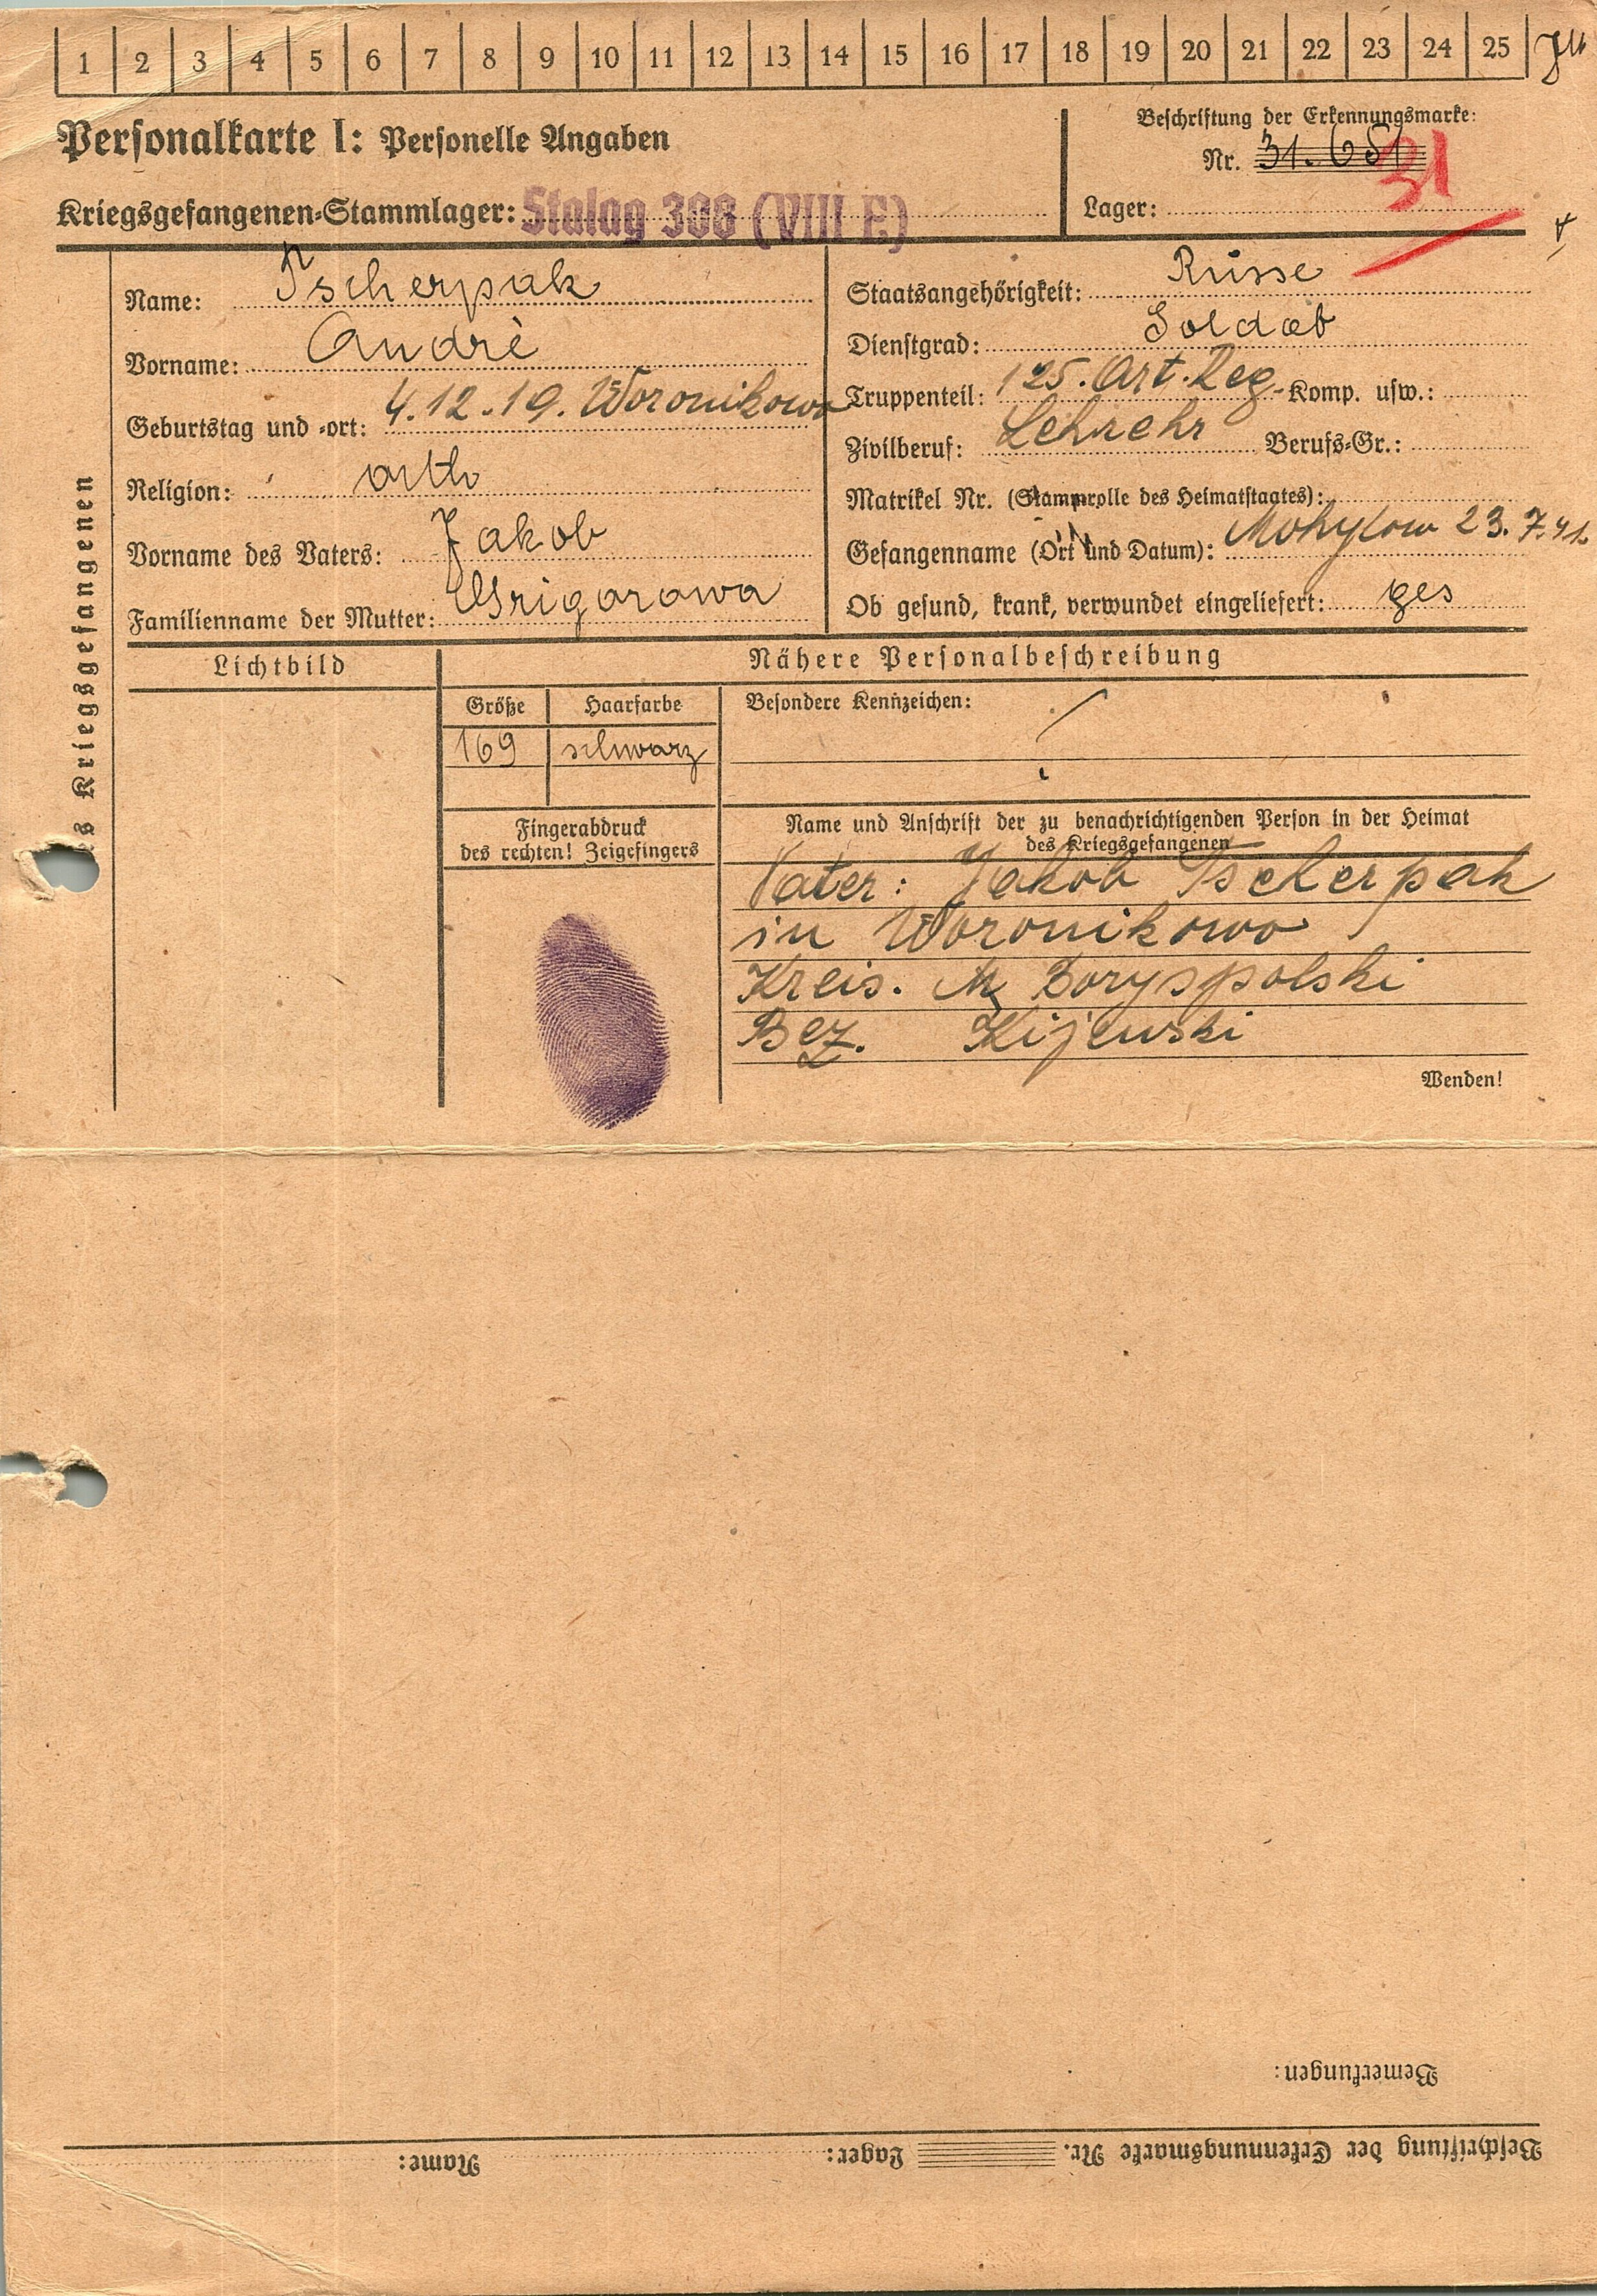 1 2 3 4 5 6 7 8 9 10 11 12 13 14 15 16 17 18 19 20 21 22 23 24 25
Personalkarte I: Personelle Angaben
Beschriftung der Erkennungsmarke:
Nr. 31.651
31
Kriegsgefangenen-Stammlager: Stalag 308 (VIII E)
Lager:
des Kriegsgefangenen
Name: Tscherpak
Vorname: Andrè
Geburtstag und -ort: 4.12.19. Woronikowo
Religion: orth
Vorname des Vaters: Jakob
Familienname der Mutter: Grigorowa
Staatsangehörigkeit: Russe
Dienstgrad: Soldat
Truppenteil: 125. Art. Reg. Komp. usw.:
Zivilberuf: Lehrehr Berufs-Gr.:
Matrikel Nr. (Stammrolle des Heimatstaates):
Gefangenname (Ort und Datum): Mohylow 23.7.41.
Ob gesund, krank, verwundet eingeliefert: ges
Lichtbild
Nähere Personalbeschreibung
Größe Haarfarbe
169 schwarz
Besondere Kennzeichen:
Fingerabdruck
des rechten! Zeigefingers
Name und Anschrift der zu benachrichtigenden Person in der Heimat
des Kriegsgefangenen
Vater: Jakob Tscherpak
in Woronikowo
Kreis. Boryspolski
Bez. Kijewski
Wenden!
Bemerkungen:
Beschriftung der Erkennungsmarke Nr. Lager: Name: